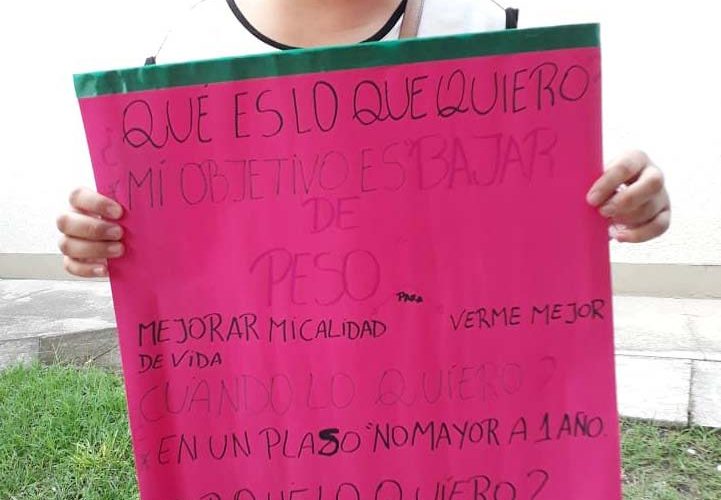 ¿QUÉ ES LO QUE QUIERO
*MI OBJETIVO ES "BAJAR
DE
PESO
PARA
MEJORAR MI CALIDAD VERME MEJOR
DE VIDA
CUANDO LO QUIERO?
* EN UN PLASO "NO MAYOR A 1 AÑO.
QUÉ LO QUIERO?